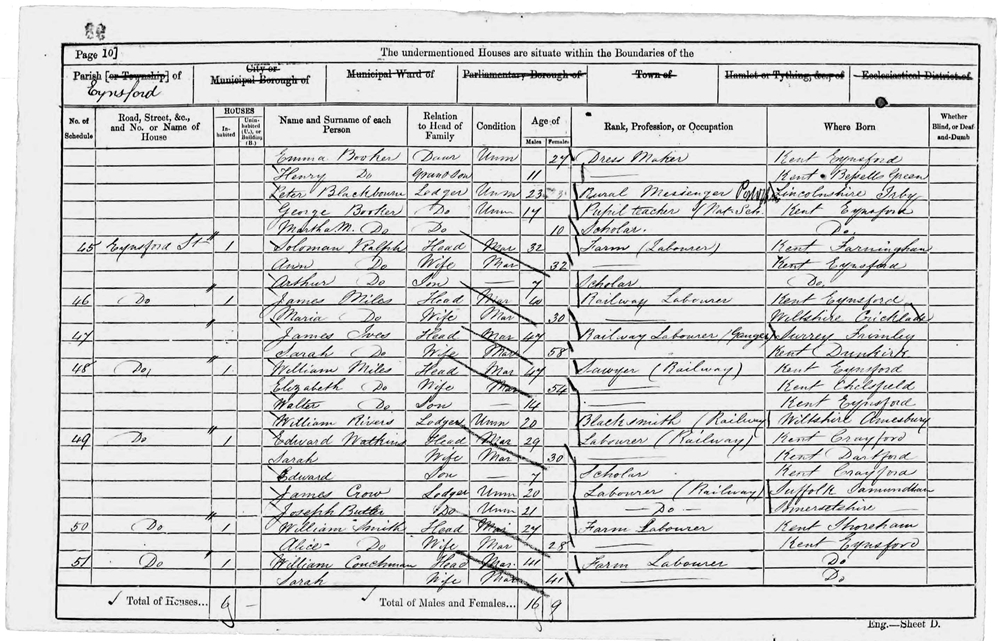 Page 10]
The undermentioned Houses are situate within the Boundaries of the
Parish [or Township] of
City or Municipal Borough of
Municipal Ward of
Parliamentary Borough of
Town of
Hamlet or Tything, &c., of
Ecclesiastical District of
Eynsford
No. of Schedule
Road, Street, &c., and No. or Name of House
HOUSES
Inhabited
Uninhabited (U.), or Building (B.)
Name and Surname of each Person
Relation to Head of Family
Condition
Age of
Males
Females
Rank, Profession, or Occupation
Where Born
Whether Blind, or Deaf-and-Dumb
Emma Booker Daur Unm 27 Dress Maker Kent Eynsford
Henry Do Grandson 11 Kent Bessells Green
Peter Blackbourn Lodger Unm 23 Rural Messenger Lincolnshire Irby
George Booker Do Unm 17 Pupil teacher Nat. Sch. Kent Eynsford
Martha M. Do Do 10 Scholar. Do.
45 Eynsford St 1 Soloman Ralph Head Mar 32 Farm (Labourer) Kent Farningham
Ann Do Wife Mar 32 Kent Eynsford
Arthur Do Son — 7 Scholar Do.
46 Do 1 James Miles Head Mar 40 Railway Labourer Kent Eynsford
Maria Do Wife Mar 30 Wiltshire Cricklade
47 1 James Ives Head Mar 47 Railway Labourer (Ganger) Surrey Frimley
Sarah Do Wife Mar 58 Kent Dunkirk
48 Do, 1 William Miles Head Mar 47 Sawyer (Railway) Kent Eynsford
Elizabeth Do Wife Mar 54 Kent Chelsfield
Walter Do Son — 14 Kent Eynsford
William Rivers Lodger Unm 20 Blacksmith (Railway) Wiltshire Amesbury
49 Do 1 Edward Watkins Head Mar 29 Labourer (Railway) Kent Crayford
Sarah Wife Mar 30 Kent Dartford
Edward Son — 7 Scholar Kent Crayford
James Crow Lodger Unm 20 Labourer (Railway) Suffolk
Joseph Butler Do Unm 21 — Do — Somersetshire —
50 Do 1 William Smith Head Mar 27 Farm Labourer Kent Shoreham
Alice Do Wife Mar 28 Kent Eynsford
51 Do 1 William Couchman Head Mar. 41 Farm Labourer Do
Sarah Wife Mar 41 Do
Total of Houses... 6
Total of Males and Females... 16 9
Eng.—Sheet D.